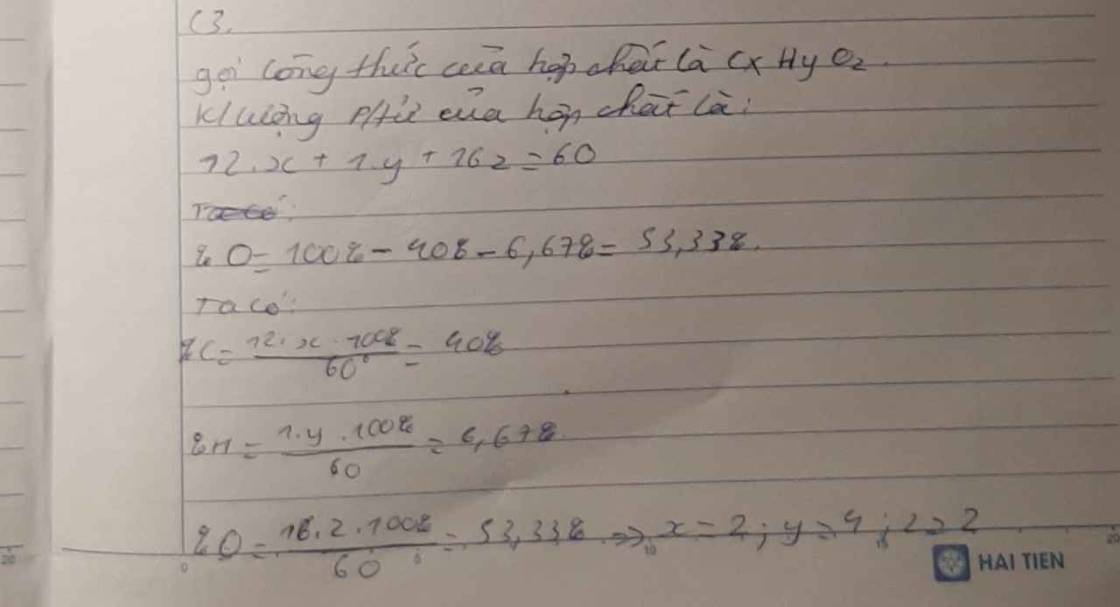 C3.
gọi công thức của hợp chất là CxHyOz.
K/lượng p/tử của hợp chất là:
12.x + 1.y + 16z = 60
Ta có:
% O = 100% - 40% - 6,67% = 53,33%.
Ta có:
%C = 12.x.100% / 60 = 40%
%H = 1.y.100% / 60 = 6,67%
%O = 16.z.100% / 60 = 53,33% => x = 2; y = 4; z = 2
0 5 10 15 20
20
HAI TIEN